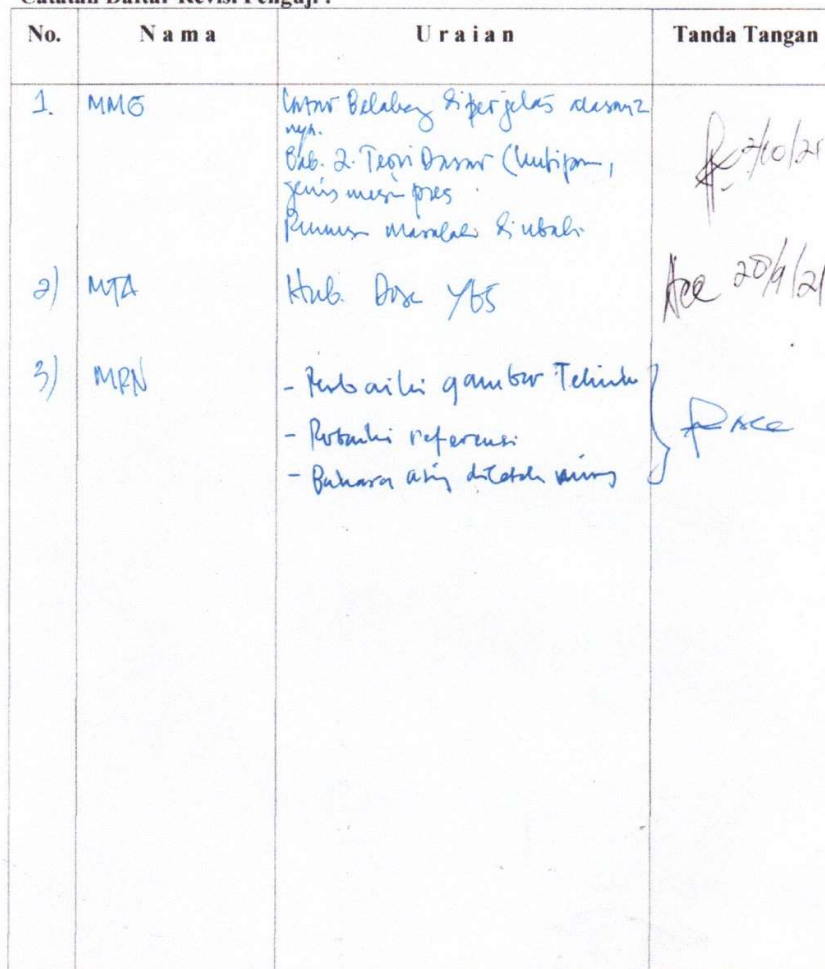 Catatan Daftar Revisi Penguji :
No. N a m a U r a i a n Tanda Tangan
1. MMG Latar Belakang diperjelas alasan2
nya.
Bab. 2. Teori Dasar (kutipan,
jenis mesin pres
Rumusan masalah diubah 2/10/21
2) MTA Hub. Dose Ybs Acc 20/9/21
3) MRN - Perbaiki gambar Teknik
- Perbaiki referensi Acc
- Bahasa asing dicetak miring